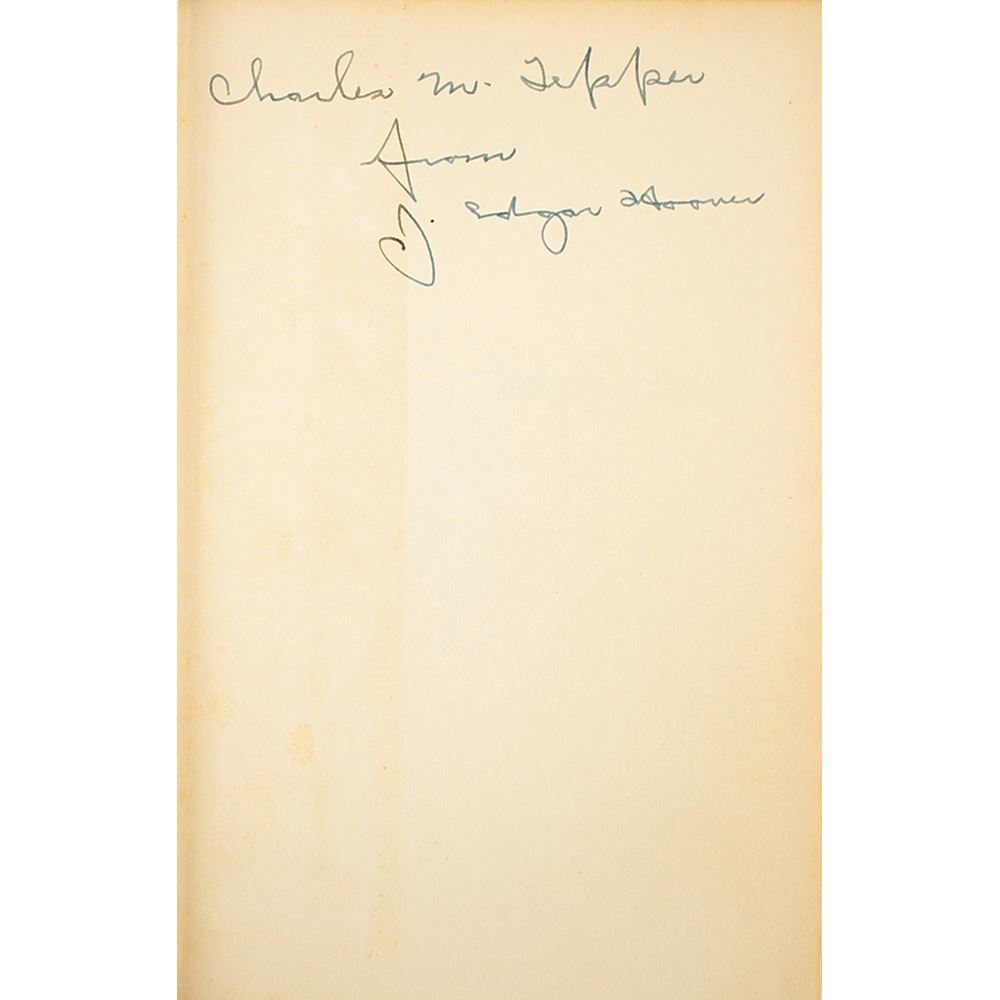 Charles M. Tepper
from
J. Edgar Hoover